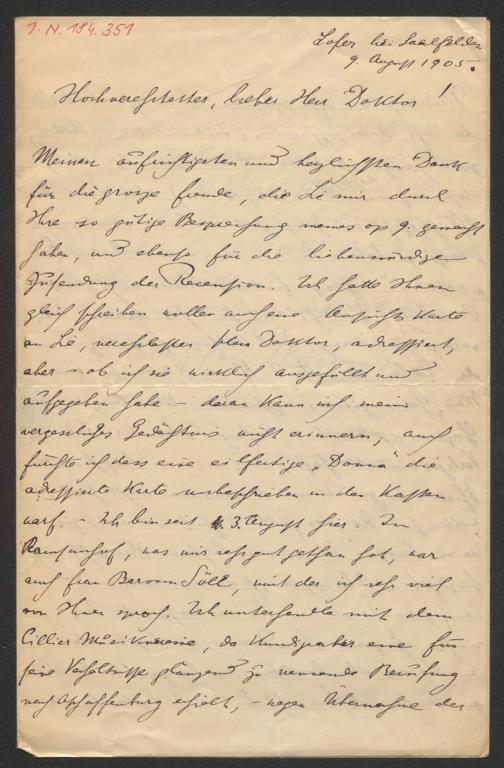 I. N. 184.351
Lofer bei Saalfelden
9. August 1905.
Hochverehrtester, lieber Herr Doktor!
Meinen aufrichtigsten und herzlichsten Dank
für die grosse Freude, die Sie mir durch
Ihre so gütige Besprechung meines op 9. gemacht
haben, und ebenso für die liebenswürdige
Zusendung der Recension. Ich hatte Ihnen
gleich schreiben wollen auch eine Ansichts Karte
an Sie, verehrtester Herr Doktor, adressiert,
aber – ob ich sie wirklich ausgefüllt und
aufgegeben habe – daran kann ich mein
vergessliches Gedächtnis nicht erinnern; auch
fürchte ich dass eine eilfertige „Donna" die
adressierte Karte unbeschrieben in den Kasten
warf. – Ich bin seit 3. August hier. Im
, was mir sehr gut gethan hat, war
auch Frau Baronin Söll, mit der ich sehr viel
von Ihnen sprach. Ich unterhandle mit dem
Cillier Musikvereine, da Kundigraber eine für
seine Verhältnisse glänzend zu nennende Berufung
nach Aschaffenburg erhielt, – wegen Übernahme der